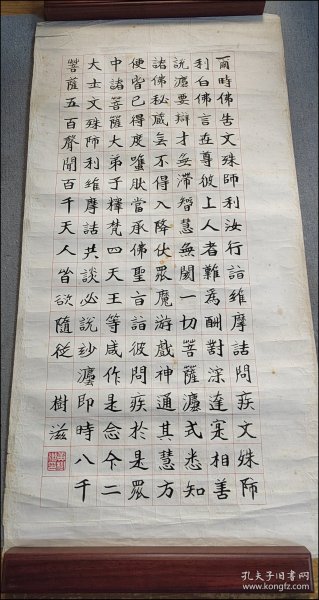 爾時佛告文殊師利汝行詣維摩詰問疾文殊師
利白佛言世尊彼上人者難為酬對深達寔相善
說灋要辯才無滯智慧無閡一切菩薩灋式悉知
諸佛秘藏無不得入降伏眾魔游戲神通其慧方
便皆已得度雖肰當承佛聖旨詣彼問疾於是眾
中諸菩薩大弟子釋梵四天王等咸作是念今二
大士文殊師利維摩詰共談必說妙灋即時八千
菩薩五百聲聞百千天人皆欲隨從 樹滋
孔夫子旧书网
www.kongfz.com